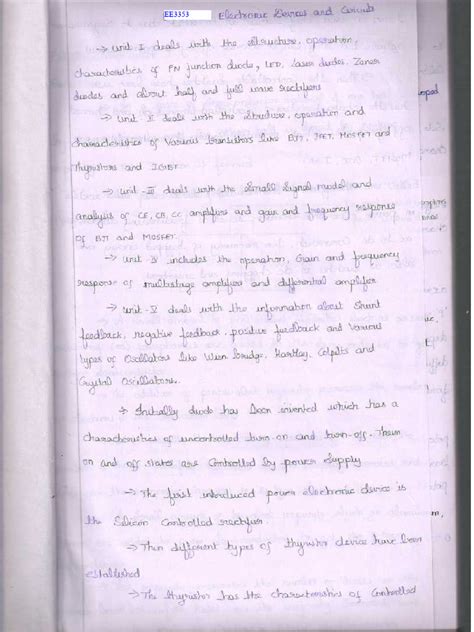 EE3353 Electronic Devices and Circuits
→ unit I deals with the structure, operation,
characteristics of PN junction diode, LED, laser diodes, Zener
diodes and about half and full wave rectifiers
→ unit II deals with the structure, operation and
characteristics of various transistors like BJT, JFET, MOSFET and
thyristors and IGBT
→ unit-III deals with the small signal model and
analysis of CE, CB, CC amplifiers and gain and frequency response
of BJT and MOSFET.
→ unit IV includes the operation, Gain and frequency
response of multistage amplifiers and differential amplifier
→ unit-V deals with the information about Shunt
feedback, negative feedback, positive feedback and various
types of Oscillators like Wien bridge, Hartley, Colpitts and
Crystal Oscillators.
→ Initially diode has been invented which has a
characteristics of uncontrolled turn-on and turn-off.
on and off states are controlled by power supply
→ The first introduced power electronic device is
the Silicon Controlled rectifier.
→ Then different types of thyristor device have been
established
→ The thyristor has the characteristics of controlled